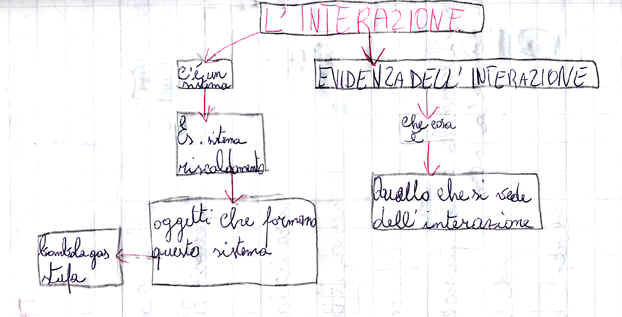 L'INTERAZIONE
C'é un
sistema
EVIDENZA DELL'INTERAZIONE
Es. sitema
riscaldamento
che cosa
è
Quallo che si vede
dell'interazione
oggetti che formano
questo sistema
bombola gas
stufa